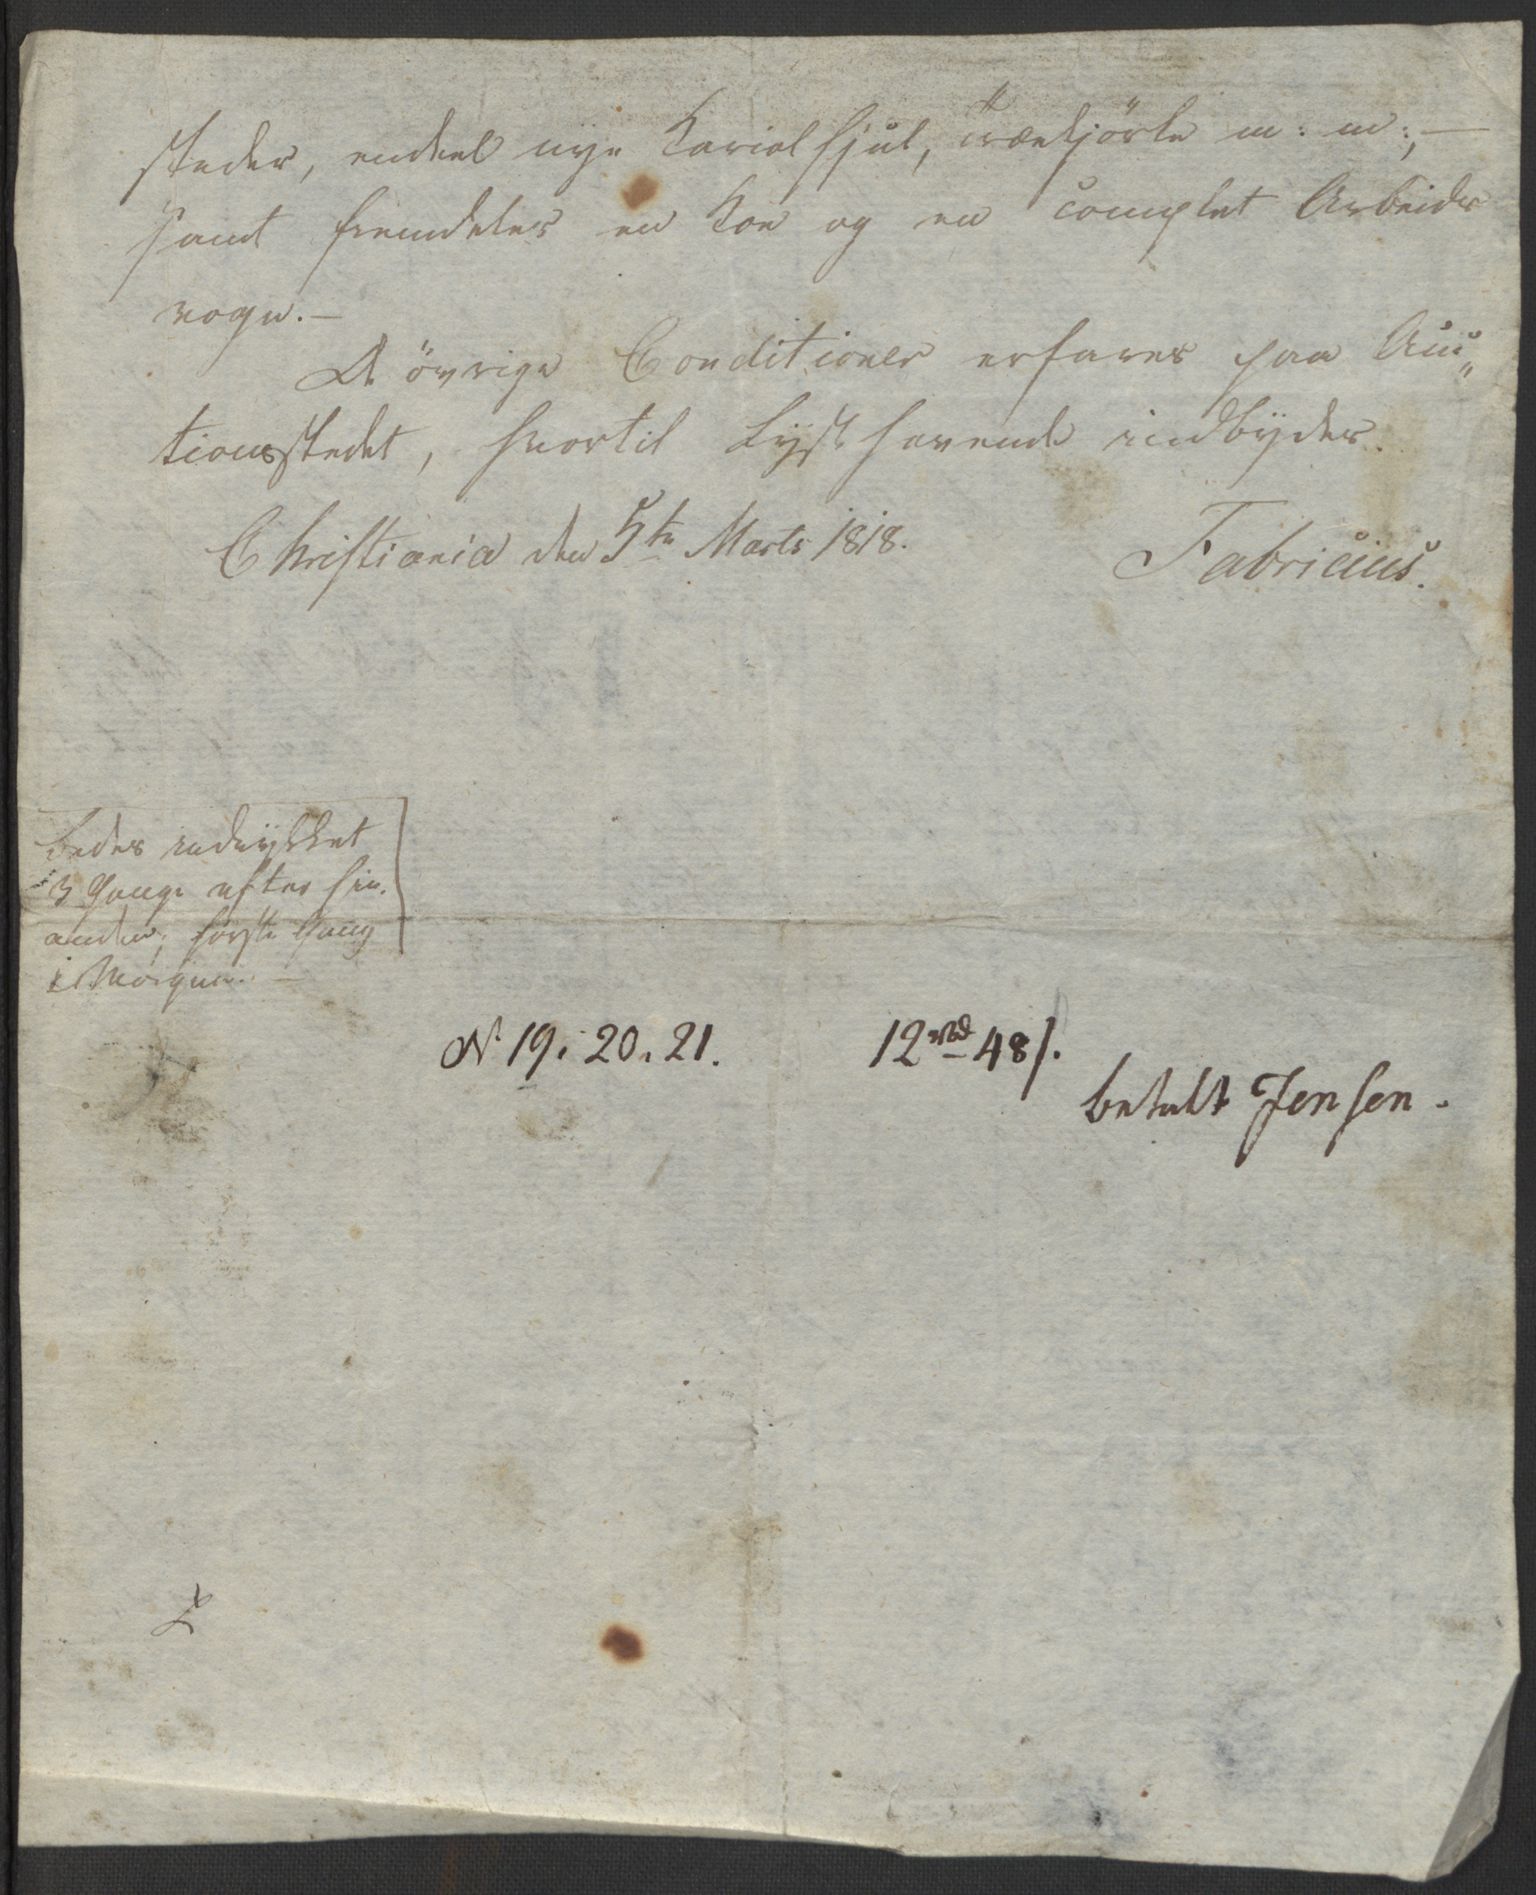 steder, endeel nye Kariolhjul, m: m:, —
samt fremdeles en Koe og en complet Arbeids
vogn. —
De övrige Conditioner erfares paa Auc„
tionsstedet, hvortil Lysthavende indbydes.
Christiania den 5te Marts 1818.
Fabricius.
Bedes indrykket
3 Gange efter hin-
anden, første Gang
i Morgen. —
N. 19. 20. 21.
12 rbd 48 s.
betalt Jensen.